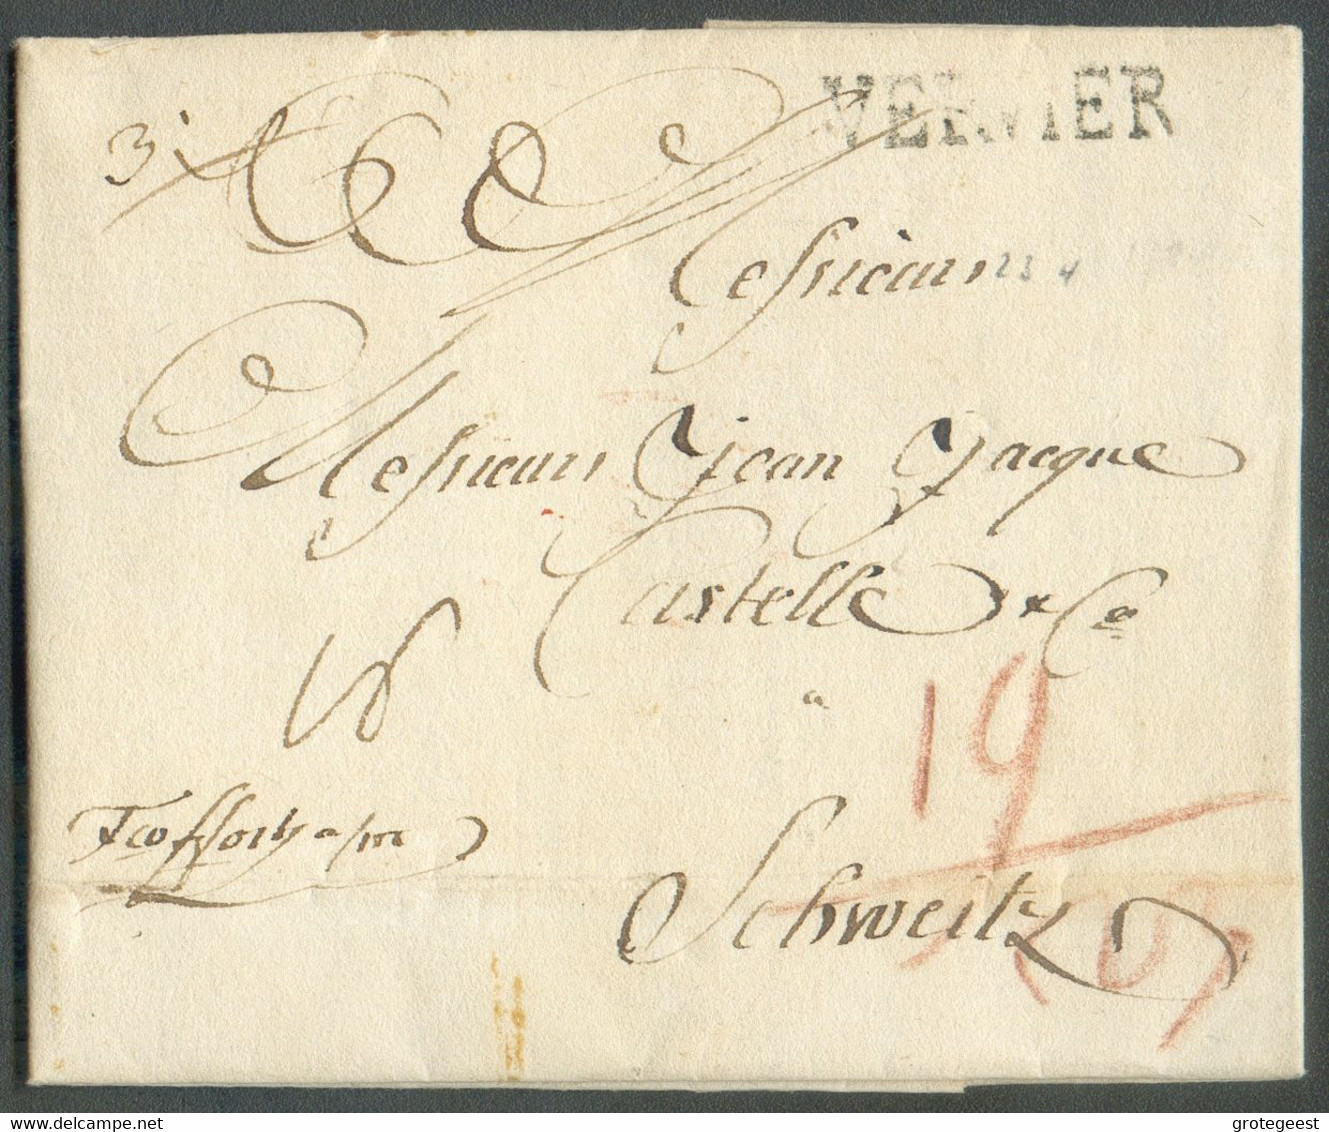 VERVIER
Messieurs
Messieurs Jean Jacque
Castelle & Co
a
19
Schweitz
www.delcampe.net
grotegeest